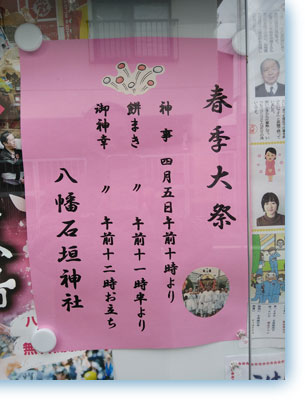 春季大祭
神事 四月五日午前十時より
餅まき 〃 午前十一時半より
御神幸 〃 午前十二時お立ち
八幡石垣神社